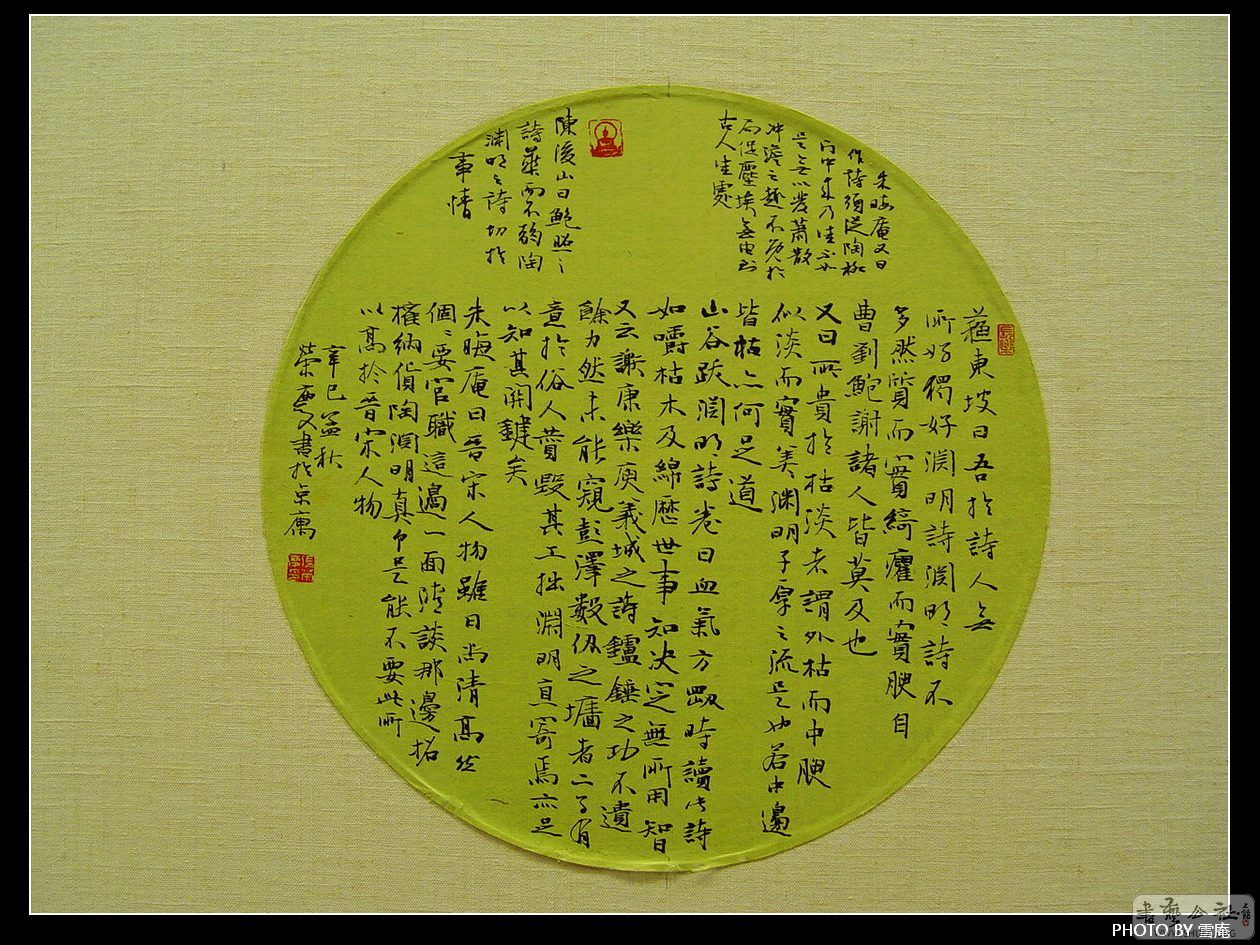 朱晦庵又曰
作詩須從陶柳
門中來乃佳不如
是無以發蕭散
冲澹之趣不免於
局促塵埃無由到
古人佳處
陳後山曰鮑照之
詩華而不弱陶
淵明之詩切於
事情
蘇東坡曰吾於詩人無
所好獨好淵明詩淵明詩不
多然質而實綺癯而實腴自
曹劉鮑謝諸人皆莫及也
又曰所貴於枯淡者謂外枯而中腴
似淡而實美淵明子厚之流是也若中邊
皆枯亦何足道
山谷跋淵明詩卷曰血氣方剛時讀此詩
如嚼枯木及綿歷世事知決定無所用智
又云謝康樂庾義城之詩鑪錘之功不遺
餘力然未能窺彭澤數仞之墻者二子有
意於俗人贊毀其工拙淵明直寄焉亦足
以知其關鍵矣
朱晦庵曰晋宋人物雖曰尚清高然
個々要官職這邊一面清談那邊招
權納貨陶淵明真个是能不要此所
以高於晋宋人物
辛巳孟秋
榮慶書於京寓
書藝公社
PHOTO BY 雪庵